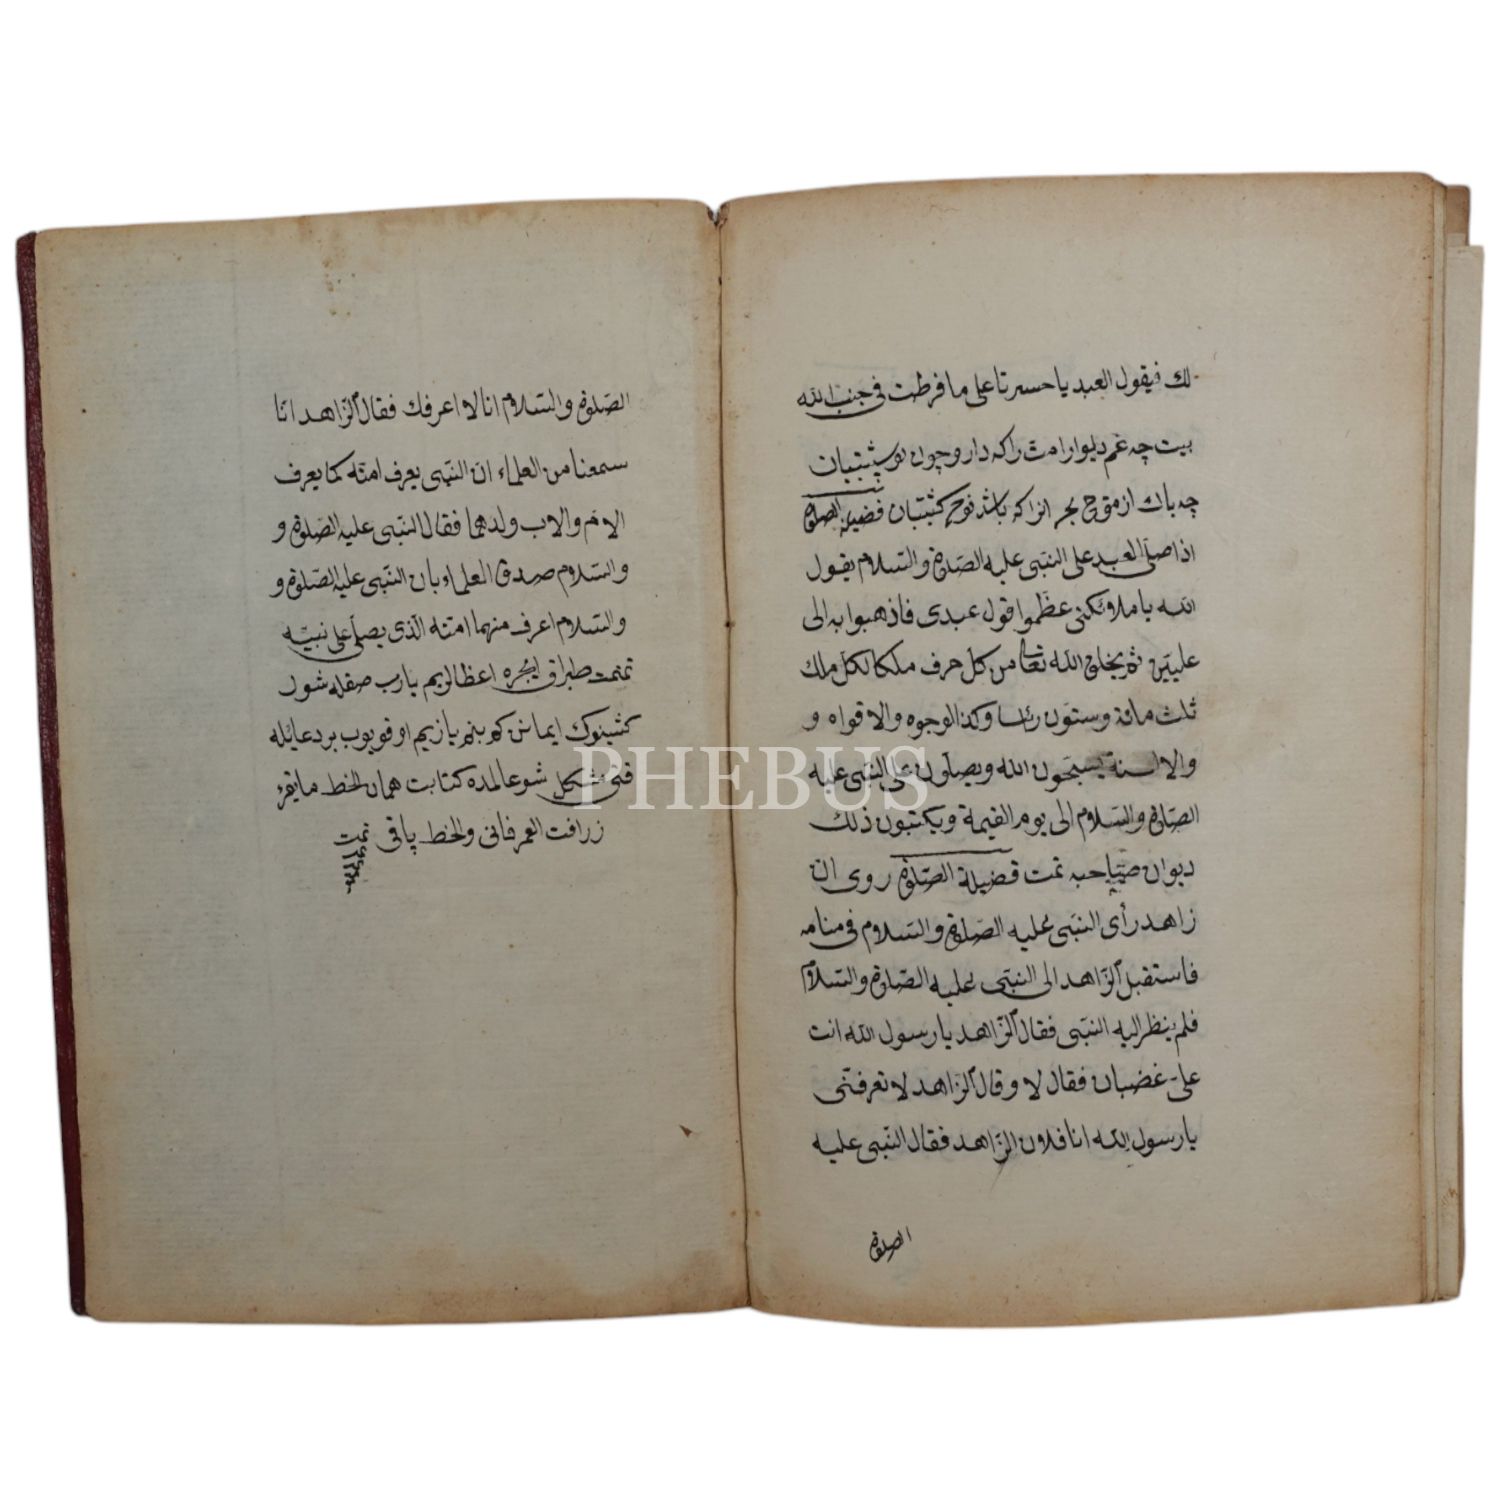 لك فيقول العبد يا حسرتا على ما فرطت فى جنب الله
بيت چه غم ديوار امت راكه دارد چون تو پشتيبان
چه باك از موج بحر انراكه باشد نوح كشتبان فضيلة الصلوة
اذا صلى العبد على النبى عليه الصلوة والسلام يقول
الله يا ملائكتى عظموا قول عبدى فاذهبوا به الى
عليين ثم يخلق الله تعالى من كل حرف ملكا لكل ملك
ثلث مائة وستون رئسا وكذا لوجوه والافواه و
والالسنة يسبحون الله ويصلون على النبى عليه
الصلوة والسلام الى يوم القيمة ويكتبون ذلك
ديوان صاحبه تمت فضيلة الصلوة روى ان
زاهد رأى النبى عليه الصلوة والسلام فى منامه
فاستقبل الزاهد الى النبى عليه الصلوة والسلام
فلم ينظر اليه النبى فقال الزاهد يا رسول الله انت
على غضبان فقال لا وقال الزاهد لا تعرفنى
يا رسول الله انا فلان الزاهد فقال النبى عليه
الصلوة
الصلوة والسلام انا لا اعرفك فقال الزاهد انا
سمعنا من العلماء ان النبى يعرف امته كما يعرف
الام والاب ولدهما فقال النبى عليه الصلوة و
والسلام صدق العلماء بان النبى عليه الصلوة و
والسلام اعرف منهما امته الذى يصلى على نبيه
تمت طبراق ايچره اعظالريم يارب صقله شول
كشينوك ايمانن كم بنم يازيم اوقويوب بر دعايله
قنى مشكل شو عالمده كتابت همان الخط ما يقرء
زرافت العمر فانى والخط باقى تمت
PHEBUS